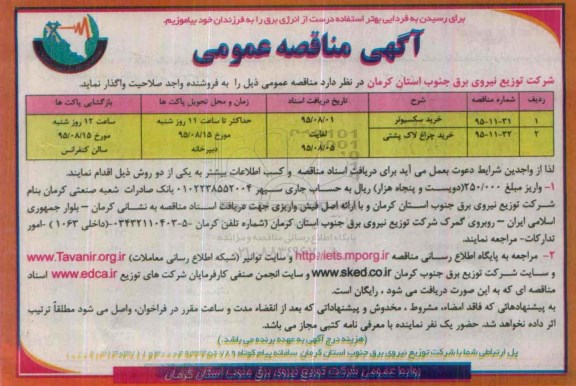 برای رسیدن به فردایی بهتر استفاده درست از انرژی برق را به فرزندان خود بیاموزیم.
آگهی مناقصه عمومی
شرکت توزیع نیروی برق جنوب استان کرمان در نظر دارد مناقصه عمومی ذیل را به فروشنده واجد صلاحیت واگذار نماید.
ردیف شماره مناقصه شرح تاریخ دریافت اسناد زمان و محل تحویل پاکت ها بازگشایی پاکت ها
۱ ۹۵-۱۱-۳۱ خرید سکسیونر ۹۵/۰۸/۰۱ حداکثر تا ساعت ۱۱ روز شنبه ساعت ۱۲ روز شنبه
۲ ۹۵-۱۱-۳۲ خرید چراغ لاک پشتی لغایت مورخ ۹۵/۰۸/۱۵ مورخ ۹۵/۰۸/۱۵
۹۵/۰۸/۰۵ دبیرخانه سالن کنفرانس
لذا از واجدین شرایط دعوت بعمل می آید برای دریافت اسناد مناقصه و کسب اطلاعات بیشتر به یکی از دو روش ذیل اقدام نمایند.
۱- واریز مبلغ ۲۵۰/۰۰۰ (دویست و پنجاه هزار) ریال به حساب جاری سپهر ۰۱۰۲۲۳۸۵۵۲۰۰۴ بانک صادرات شعبه صنعتی کرمان بنام
شرکت توزیع نیروی برق جنوب استان کرمان و با ارائه اصل فیش واریزی جهت دریافت اسناد مناقصه به نشانی کرمان – بلوار جمهوری
اسلامی ایران – روبروی گمرک شرکت توزیع نیروی برق جنوب استان کرمان (شماره تلفن کرمان ۵-۰۳۴۳۲۱۱۰۴۰۳ -(داخلی ۱۰۶۳) -امور
تدارکات- مراجعه نمایند.
۲- مراجعه به پایگاه اطلاع رسانی مناقصه http://iets.mporg.ir و سایت توانیر (شبکه اطلاع رسانی معاملات) www.Tavanir.org.ir
و سایت شرکت توزیع برق جنوب کرمان www.sked.co.ir و سایت انجمن صنفی کارفرمایان شرکت های توزیع www.edca.ir اسناد
مناقصه ای که به این صورت دریافت می شود ، رایگان است.
به پیشنهادهائی که فاقد امضاء، مشروط ، مخدوش و پیشنهاداتی که بعد از انقضاء مدت و ساعت مقرر در فراخوان، واصل می شود مطلقاً ترتیب
اثر داده نخواهد شد. حضور یک نفر نماینده با معرفی نامه کتبی مجاز می باشد.
(هزینه درج آگهی به عهده برنده می باشد)
پل ارتباطی شما با شرکت توزیع نیروی برق جنوب استان کرمان سامانه پیام کوتاه
روابط عمومی شرکت توزیع نیروی برق جنوب استان کرمان